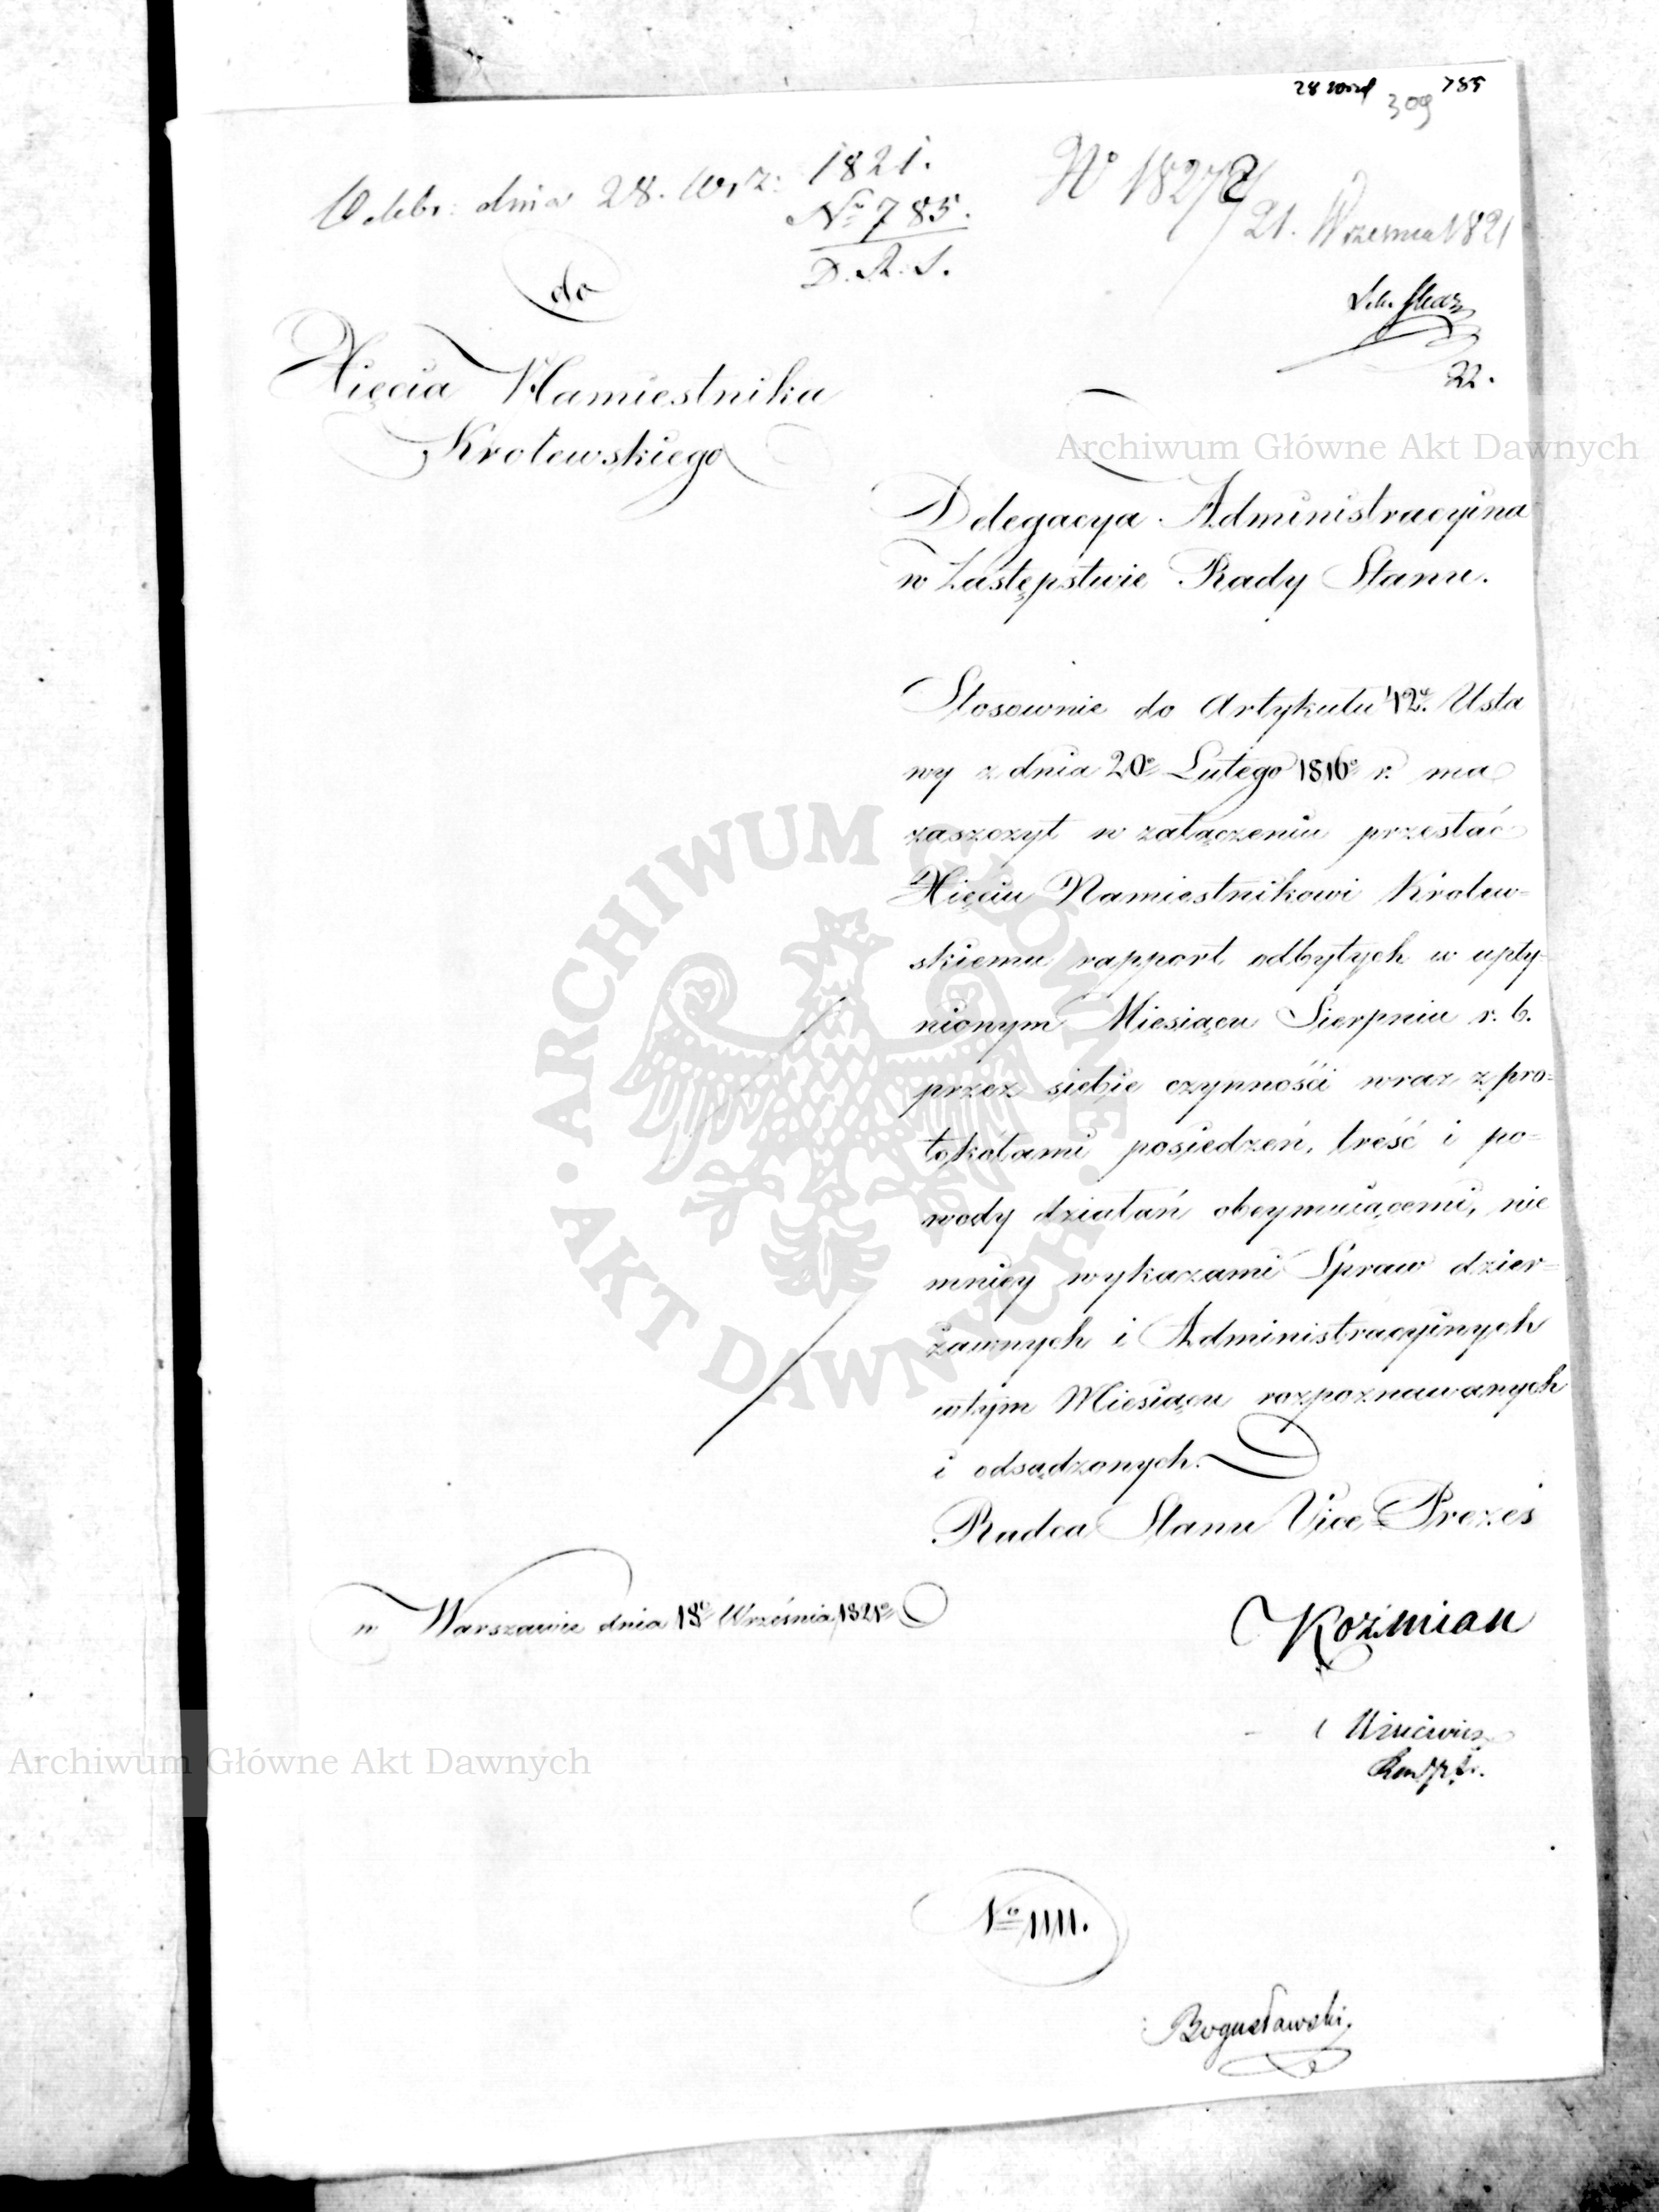 28 wrzś 309 785
Odebr: dnia 28. Wrz: 1821.
No 785.
D. R. S.
No 18272
21. Wrzesnia 1821
22.
do
Xięcia Namiestnika
Krolewskiego
Archiwum Główne Akt Dawnych
Delegacya Administracyina
w Zastępstwie Rady Stanu.
Stosownie do Artykułu 42o Usta
wy z dnia 20o Lutego 1816o r. ma
zaszczyt w załączeniu przesłać
Xięciu Namiestnikowi Krolew=
skiemu rapport odbytych w upły=
nionym Miesiącu Sierpniu r. b.
przez siebie czynności wraz z pro=
tokołami posiedzeń, treść i po=
wody działań obeymuiącemi, nie
mniey wykazami Spraw dzier=
żawnych i Administracyinych
wtym Miesiącu rozpoznawanych
i odsądzonych.
Radca Stanu Vice Prezes
w Warszawie dnia 18o Września 1821o
Koźmian
Archiwum Główne Akt Dawnych
No 1111.
Bogusławski.
ARCHIWUM GŁÓWNE
AKT DAWNYCH